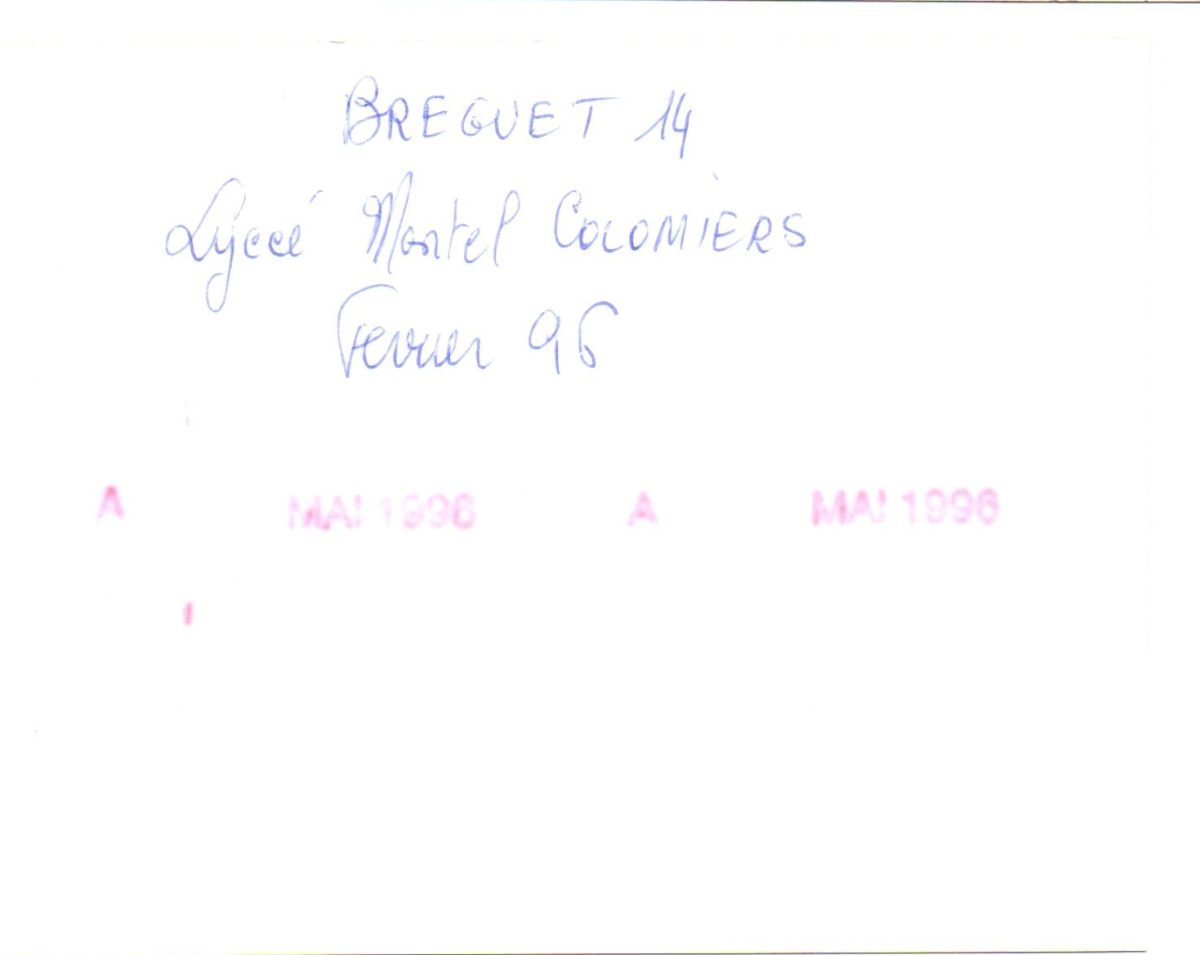 BREGUET 14
Lyceé Montel COLOMIERS
Fevrier 96
A MAI 1996 A MAI 1996
1